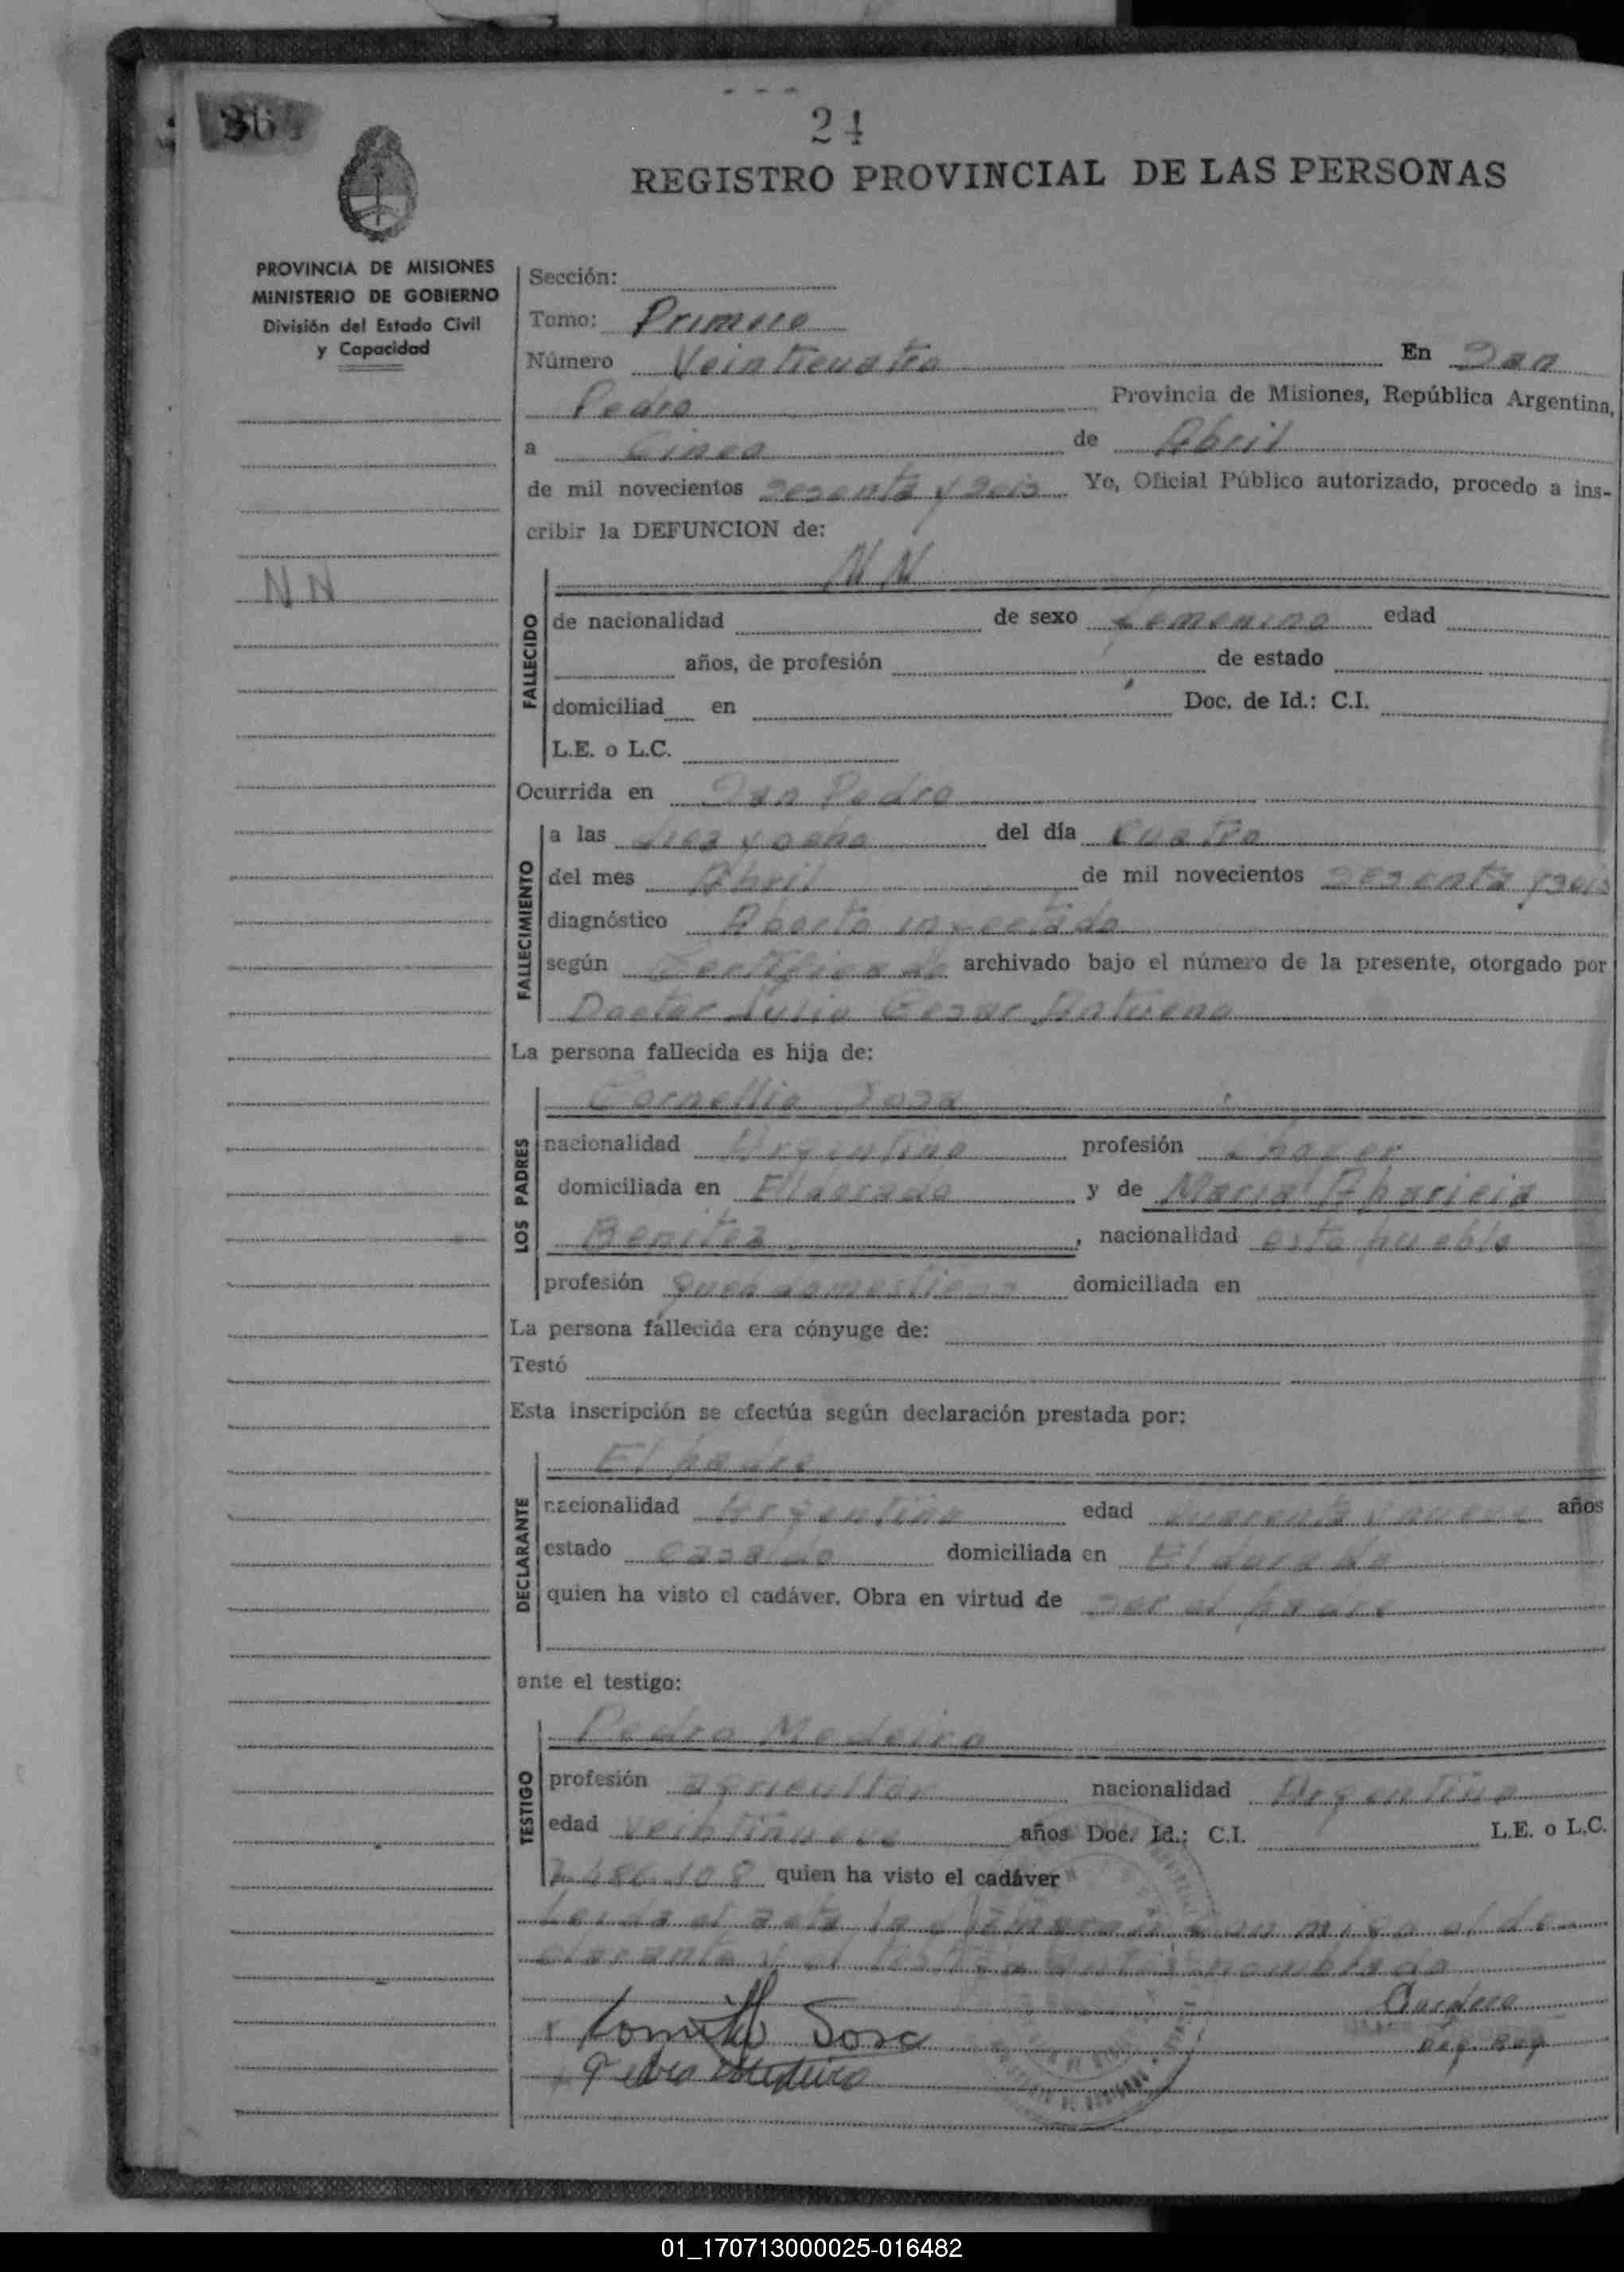 36
24
REGISTRO PROVINCIAL DE LAS PERSONAS
PROVINCIA DE MISIONES
MINISTERIO DE GOBIERNO
División del Estado Civil
y Capacidad
NN
Sección:
Tomo: Primero
Número Veinticuatro En San
Pedro Provincia de Misiones, República Argentina,
a Cinco de Abril
de mil novecientos sesenta y seis Yo, Oficial Público autorizado, procedo a ins-
cribir la DEFUNCION de:
N N
FALLECIDO
de nacionalidad de sexo femenino edad
años, de profesión de estado
domiciliad en Doc. de Id.: C.I.
L.E. o L.C.
Ocurrida en San Pedro
FALLECIMIENTO
a las diez y ocho del día Cuatro
del mes Abril de mil novecientos sesenta y seis
diagnóstico Aborto infectado
según Certificado archivado bajo el número de la presente, otorgado por
Doctor Julio Cesar
La persona fallecida es hija de:
LOS PADRES
Cornellio Sosa
nacionalidad Argentino profesión Chofer
domiciliada en Elldorado y de Maria Aparicia
Benitez, nacionalidad este pueblo
profesión queh domesticos domiciliada en
La persona fallecida era cónyuge de:
Testó
Esta inscripción se efectúa según declaración prestada por:
DECLARANTE
El padre
nacionalidad Argentino edad cuarenta y nueve años
estado casado domiciliada en Eldorado
quien ha visto el cadáver. Obra en virtud de ser el padre
ante el testigo:
TESTIGO
Pedro Medeiro
profesión agricultor nacionalidad Argentino
edad veintinueve años Doc. Id.: C.I. L.E. o L.C.
7.486.108 quien ha visto el cadáver
Leida el acta la firmaron conmigo el de
clarante y el testigo antes nombrado
Sosa
Pedro Medeiro
01_170713000025-016482